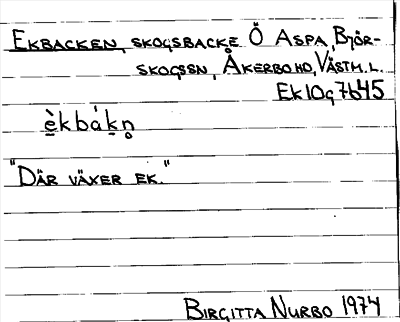 EKBACKEN, SKOGSBACKE Ö ASPA, BJÖR-
SKOGSSN, ÅKERBO HD, VÄSTM. L.
EK 10g 7645
è̱kbáḵn̥
"DÄR VÄXER EK."
BIRGITTA NURBO 1974